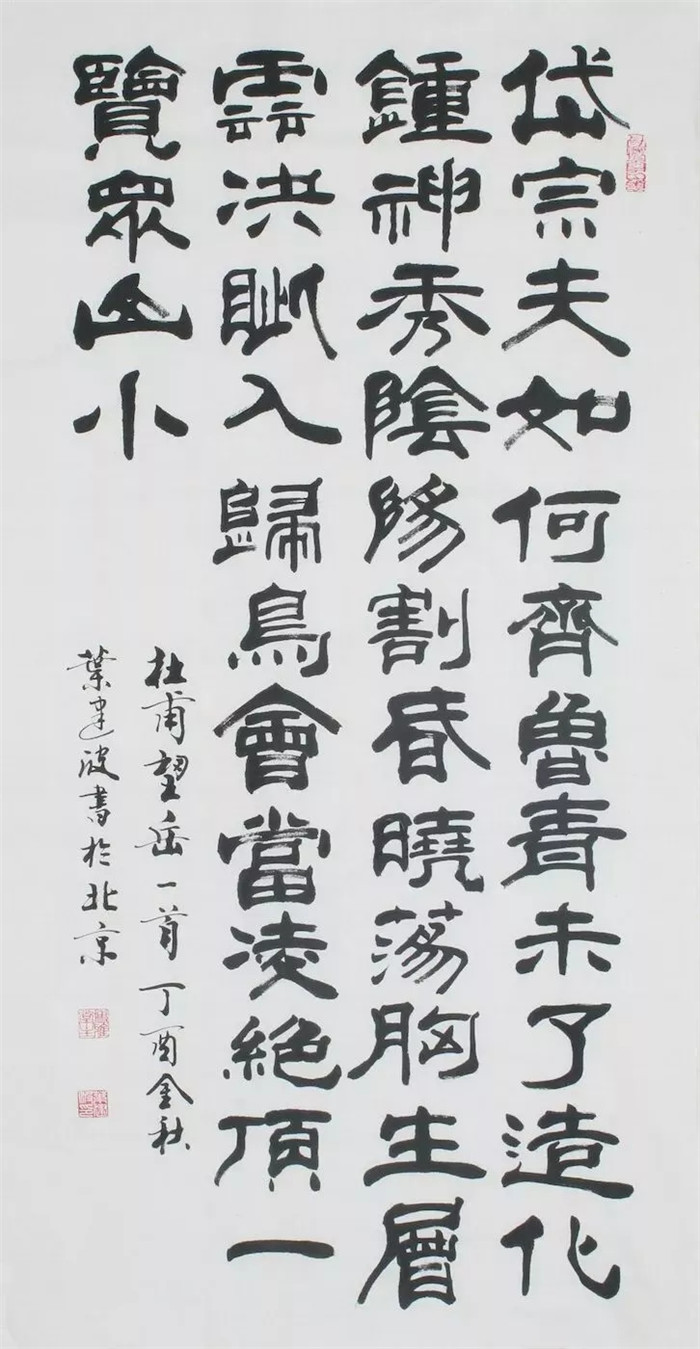 岱宗夫如何齊魯青未了造化
鍾神秀陰陽割昏曉荡胸生層
雲決眦入歸鳥會當凌絕頂一
覽眾山小
杜甫望岳一首丁酉金秋
葉建波書於北京